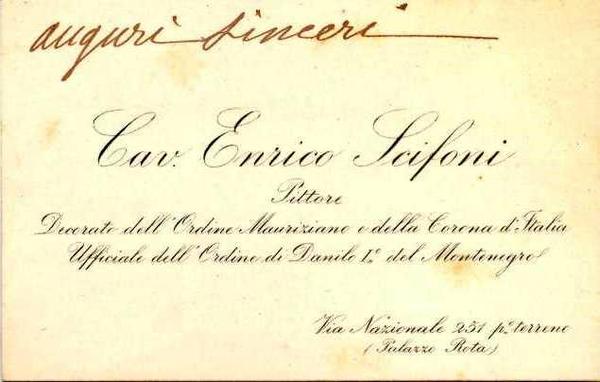 auguri sinceri
Cav. Enrico Scifoni
Pittore
Decorato dell'Ordine Mauriziano e della Corona d'Italia
Ufficiale dell'Ordine di Danilo I.º del Montenegro
Via Nazionale 251 p.º terreno
(Palazzo Rota)